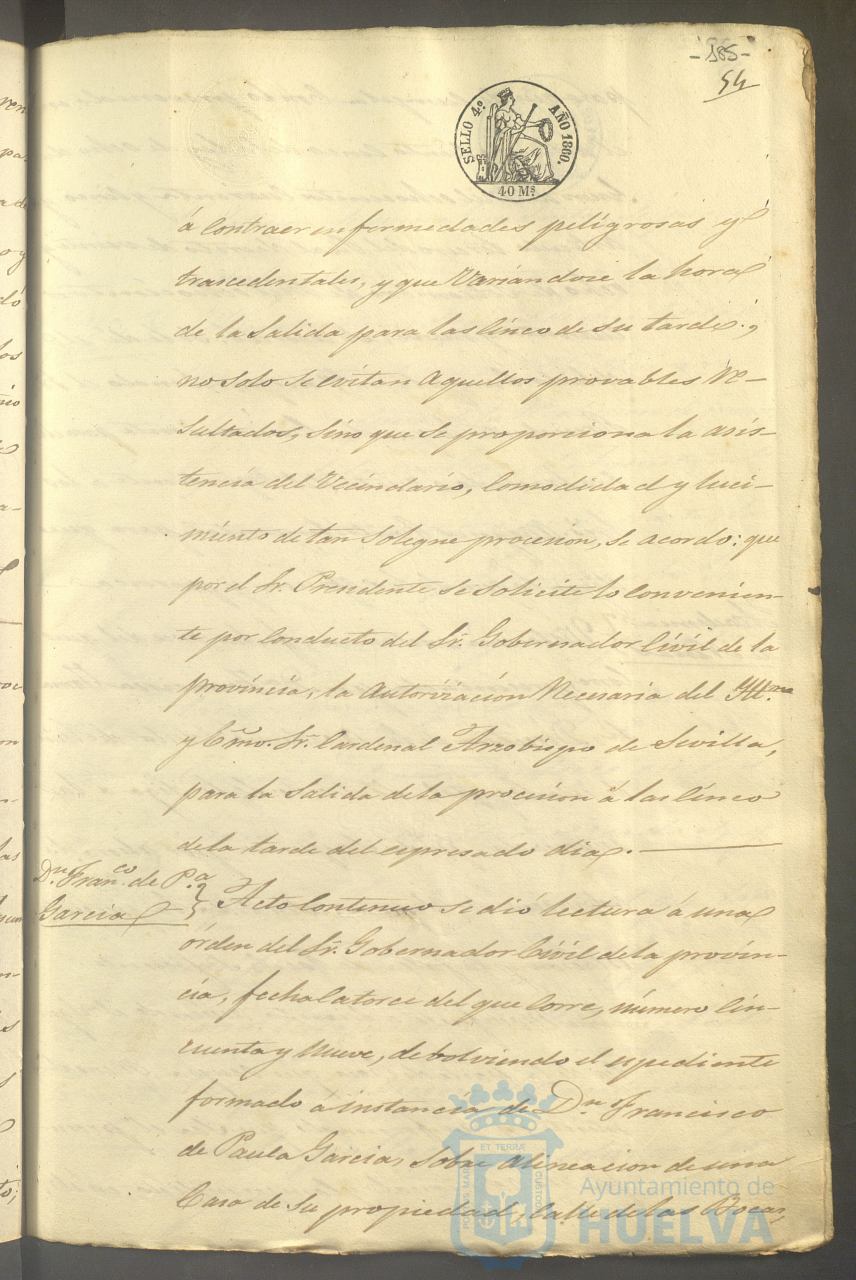 -185-
54
SELLO 4º AÑO 1860.
40 Ms.
á contraer enfermedades peligrosas y
trascedentales, y que Variandose la hora
de la Salida para las Cinco de su tarde,
no solo se evitan Aquellos provables Re-
sultados, Sino que se proporciona la asis-
tencia del Vecindario, Comodidad y luci-
miento de tan Solegne procesion, se acordo: que
por el Sr. Presidente se Solicite lo convenien-
te por Conducto del Sr. Gobernador Civil de la
provincia, la Autorización Necesaria del Yllmo.
y Emo. Sr. Cardenal Arzobispo de Sevilla,
para la Salida de la procesion á las Cinco
de la tarde del espresado dia.
Dn. Franco. de P.a
Garcia
Acto Continuo se dió lectura á una
órden del Sr. Gobernador Civil de la provin-
cia, fecha Catorce del que Corre, número Cin-
cuenta y Nueve, debolviendo el espediente
formado á instancia de Dn. Francisco
de Paula Garcia, Sobre Alineacion de una
Casa de Su propiedad, Calle de las Bocas,
PORTUS MARIS ET TERRÆ CUSTODIA
Ayuntamiento de
HUELVA